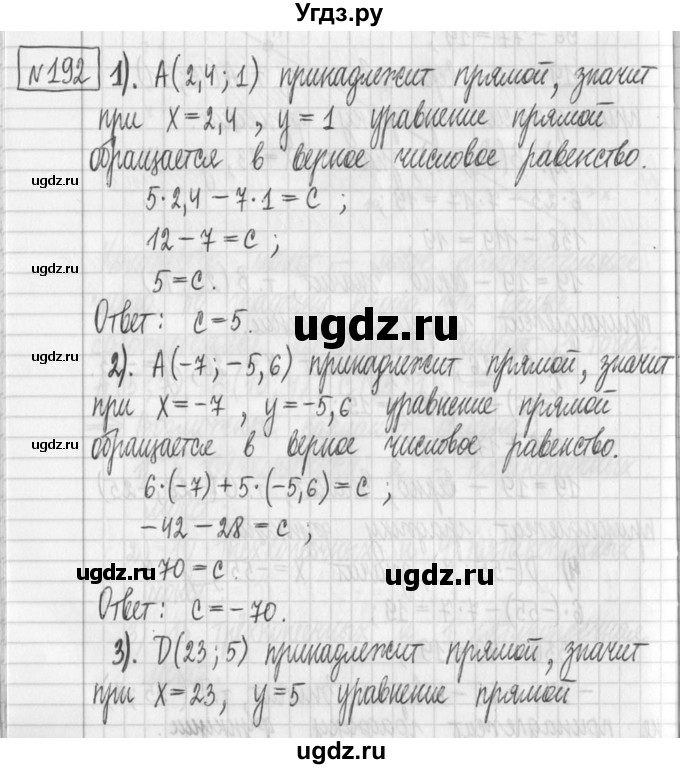 Угдз.ру
№192 1). А(2,4; 1) принадлежит прямой, значит
при х=2,4, у=1 уравнение прямой
обращается в верное числовое равенство.
ugdz.ru
5·2,4 – 7·1 = с ;
12 – 7 = с ;
ugdz.ru
5 = с.
Ответ: с = 5.
ugdz.ru
ugdz.ru
2). А(-7; -5,6) принадлежит прямой, значит
при х=-7, у=-5,6 уравнение прямой
обращается в верное числовое равенство.
ugdz.ru
6·(-7)+5·(-5,6)=с ;
-42 – 28 = с ;
ugdz.ru
70 = с.
ugdz.ru
Ответ: с = -70.
3). D(23; 5) принадлежит прямой, значит
при х=23, у=5 уравнение прямой
ugdz.ru